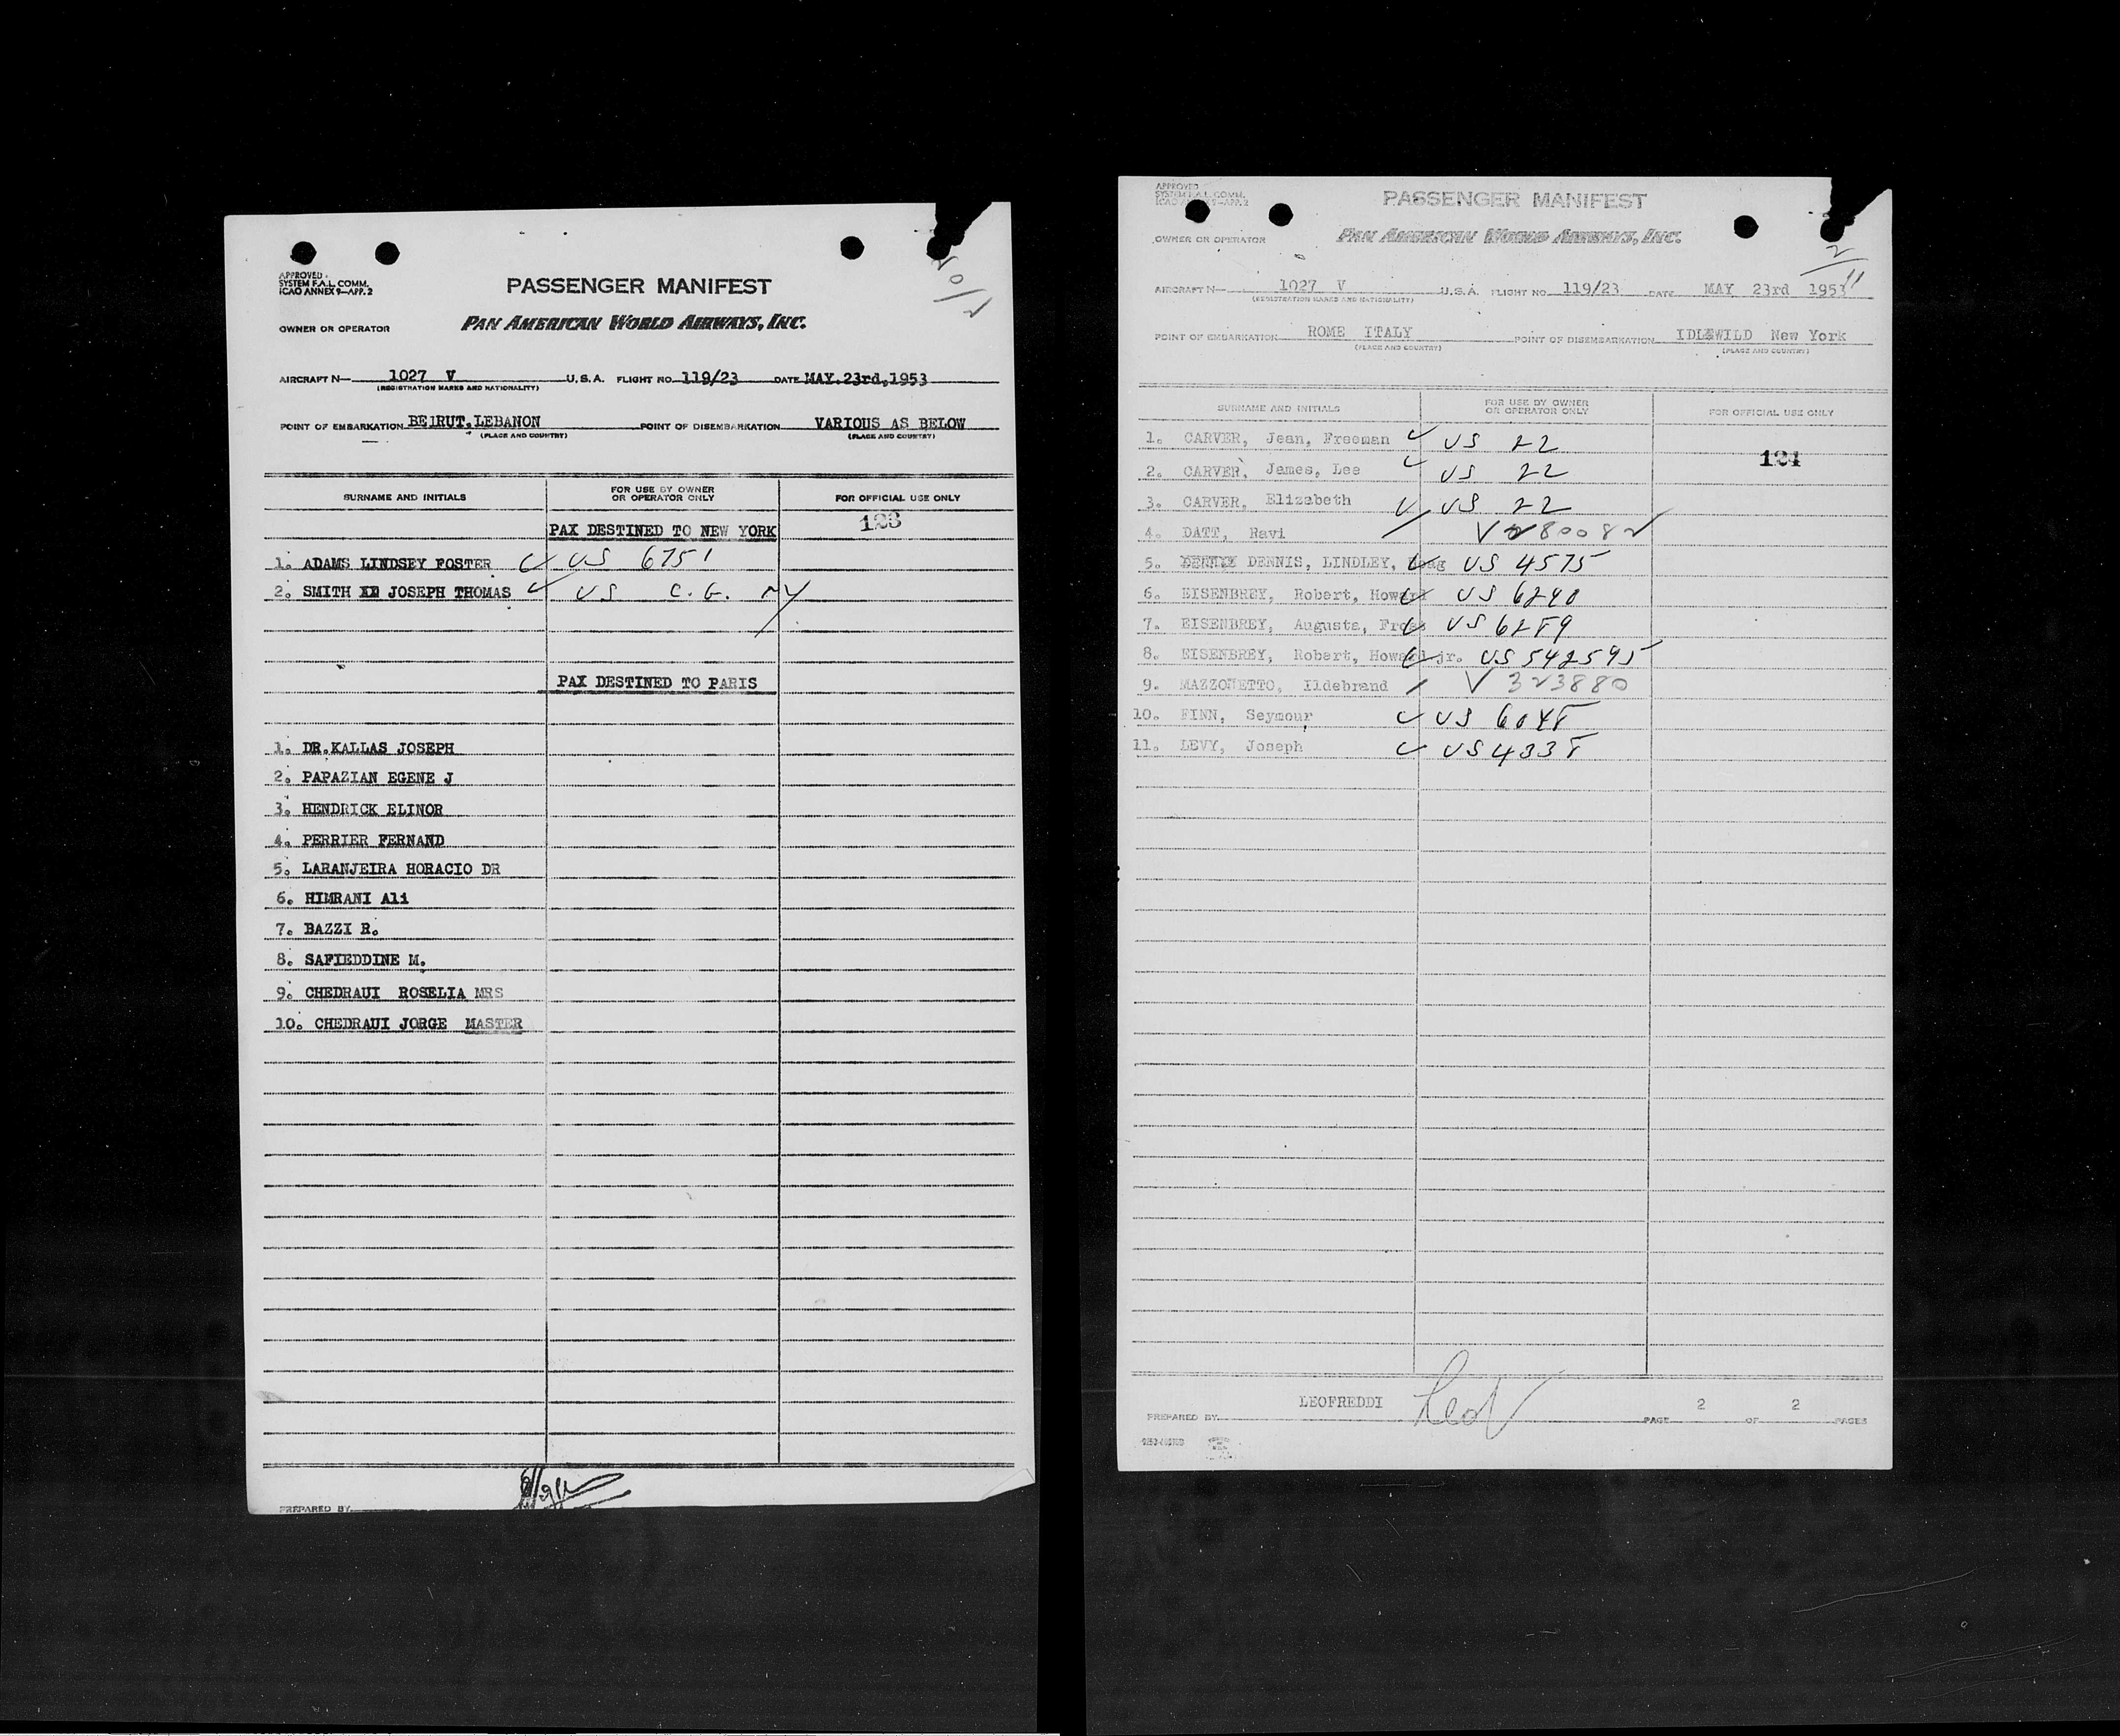 APPROVED
SYSTEM F.A.L. COMM.
ICAO ANNEX 9—APP. 2
PASSENGER MANIFEST
OWNER OR OPERATOR PAN AMERICAN WORLD AIRWAYS, INC.
AIRCRAFT N— 1027 V U.S.A. FLIGHT NO. 119/23 DATE MAY.23rd,1953
(REGISTRATION MARKS AND NATIONALITY)
POINT OF EMBARKATION BEIRUT.LEBANON POINT OF DISEMBARKATION VARIOUS AS BELOW
(PLACE AND COUNTRY) (PLACE AND COUNTRY)
SURNAME AND INITIALS FOR USE BY OWNER OR OPERATOR ONLY FOR OFFICIAL USE ONLY
123
PAX DESTINED TO NEW YORK
1. ADAMS LINDSEY FOSTER US 6751
2. SMITH JOSEPH THOMAS US C.G. NY
PAX DESTINED TO PARIS
1. DR.KALLAS JOSEPH
2. PAPAZIAN EGENE J
3. HENDRICK ELINOR
4. PERRIER FERNAND
5. LARANJEIRA HORACIO DR
6. HIMRANI Ali
7. BAZZI R.
8. SAFIEDDINE M.
9. CHEDRAUI ROSELIA MRS
10. CHEDRAUI JORGE MASTER
PREPARED BY
APPROVED
SYSTEM F.A.L. COMM.
ICAO ANNEX 9—APP. 2
PASSENGER MANIFEST
OWNER OR OPERATOR PAN AMERICAN WORLD AIRWAYS, INC.
2/11
AIRCRAFT N— 1027 V U.S.A. FLIGHT NO. 119/23 DATE MAY 23rd 1953
(REGISTRATION MARKS AND NATIONALITY)
POINT OF EMBARKATION ROME ITALY POINT OF DISEMBARKATION IDLEWILD New York
(PLACE AND COUNTRY) (PLACE AND COUNTRY)
SURNAME AND INITIALS FOR USE BY OWNER OR OPERATOR ONLY FOR OFFICIAL USE ONLY
124
1. CARVER, Jean, Freeman US 22
2. CARVER, James, Lee US 22
3. CARVER, Elizabeth US 22
4. DATT, Ravi V 280082
5. DENNIS, LINDLEY, US 4575
6. EISENBREY, Robert, Howard US 6240
7. EISENBREY, Augusta, US 6259
8. EISENBREY, Robert, Howard jr. US 542595
9. MAZZONETTO, Ildebrand V 323880
10. FINN, Seymour US 6045
11. LEVY, Joseph US 4335
PREPARED BY LEOFREDDI PAGE 2 OF 2 PAGES